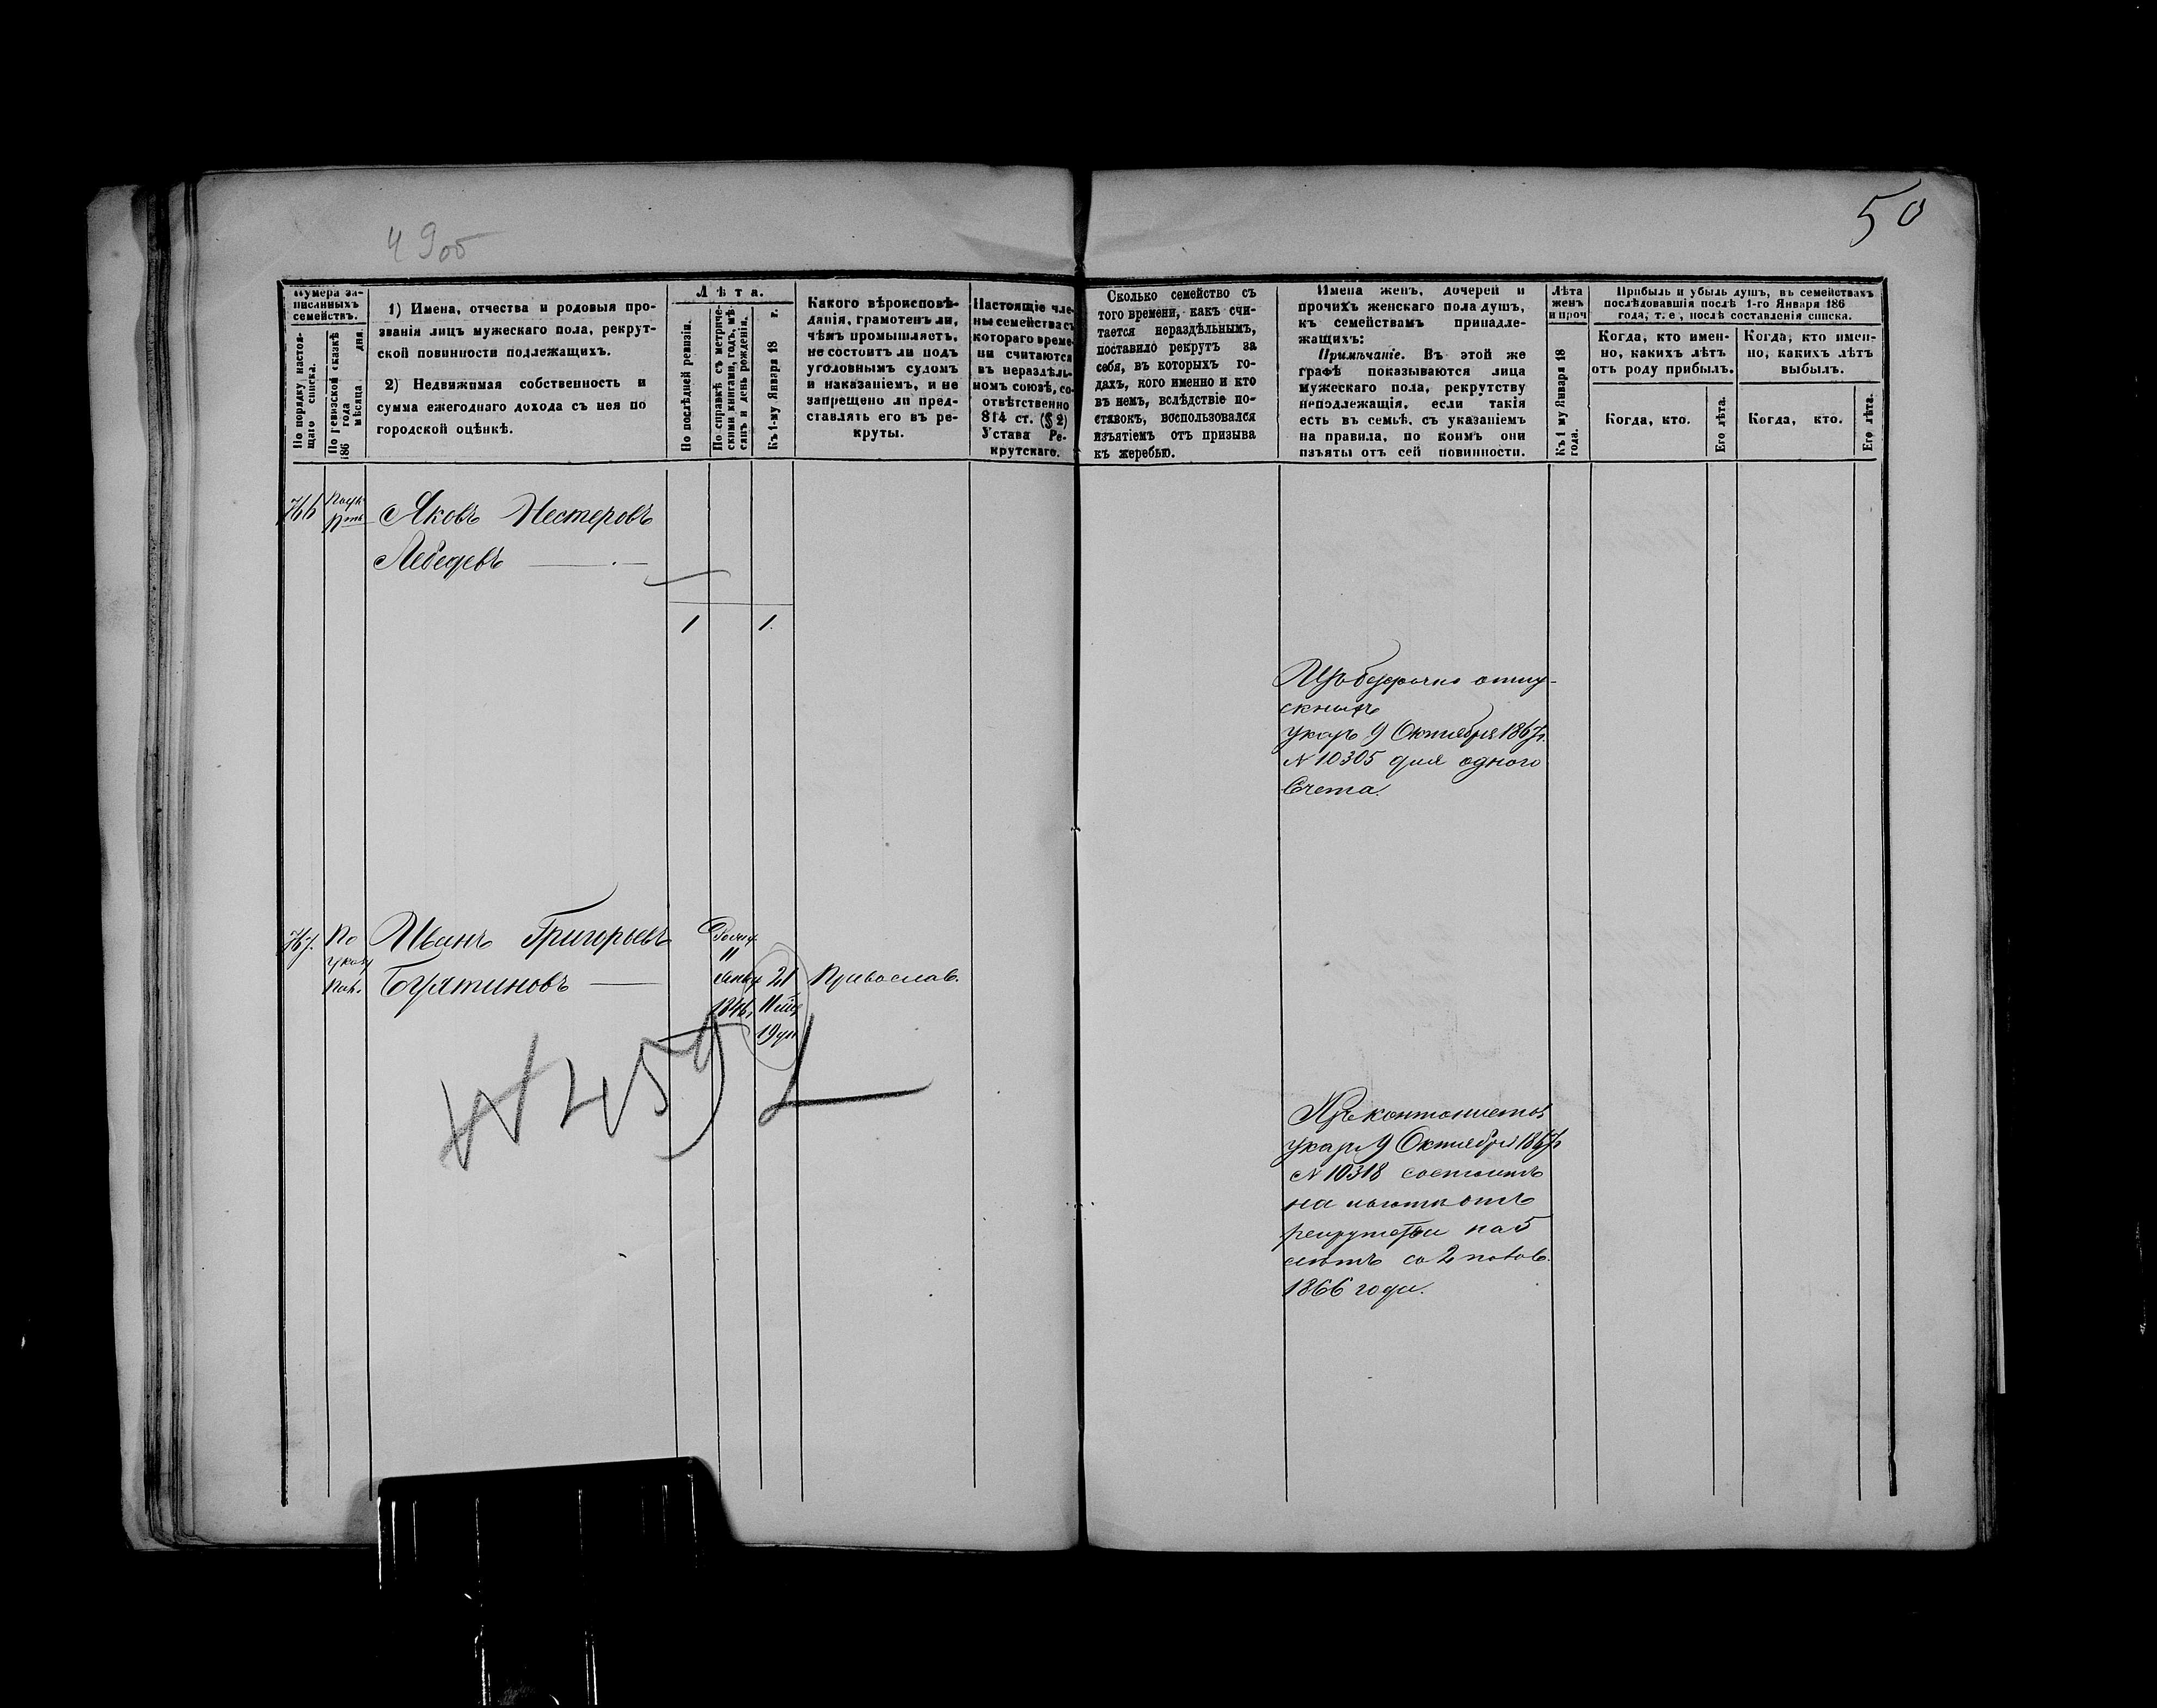 49об
50
Нумера за-
писанныхъ
семействъ.
По порядку настоя-
щаго списка.
По ревизской сказкѣ
186 года
мѣсяца дня.
1) Имена, отчества и родовыя про-
званія лицъ мужескаго пола, рекрут-
ской повинности подлежащихъ.
2) Недвижимая собственность и
сумма ежегоднаго дохода съ нея по
городской оцѣнкѣ.
Лѣта.
По послѣдней ревизіи.
По справкѣ съ метриче-
скими книгами, годъ, мѣ-
сяцъ и день рожденія.
Къ 1-му Января 18 г.
Какого вѣроисповѣ-
данія, грамотенъ ли,
чѣмъ промышляетъ,
не состоитъ ли подъ
уголовнымъ судомъ
и наказаніемъ, и не
запрещено ли пред-
ставлять его въ ре-
круты.
Настоящіе чле-
ны семейства съ
котораго време-
ни считаются
въ нераздѣль-
номъ союзѣ, со-
отвѣтственно
814 ст. (§ 2)
Устава Ре-
крутскаго.
Сколько семейство съ
того времени, какъ счи-
тается нераздѣльнымъ,
поставило рекрутъ за
себя, въ которыхъ го-
дахъ, кого именно и кто
въ немъ, вслѣдствіе по-
ставокъ, воспользовался
изъятіемъ отъ призыва
къ жеребью.
Имена женъ, дочерей и
прочихъ женскаго пола душъ,
къ семействамъ принадле-
жащихъ:
Примѣчаніе. Въ этой же
графѣ показываются лица
мужескаго пола, рекрутству
неподлежащія, если такія
есть въ семьѣ, съ указаніемъ
на правила, по коимъ они
изъяты отъ сей повинности.
Лѣта
женъ
и проч
Къ 1 му Января 18
года.
Прибыль и убыль душъ, въ семействахъ
послѣдовавшія послѣ 1-го Января 186
года, т. е, послѣ составленія списка.
Когда, кто имен-
но, какихъ лѣтъ
отъ роду прибылъ.
Когда, кто имен-
но, какихъ лѣтъ
выбылъ.
Когда, кто.
Его лѣта.
Когда, кто.
Его лѣта.
Яковъ Нестеровъ
Лебедевъ
1 1.
отпу-
скныхъ
9 Октября 1867г.
N 10305 для одного
Счета.
По Иванъ Григорьевъ
указу
11
21 Православ.
1846г.
19 дн
N 459
указъ 9 Октября 1867г
N 10318 состоитъ
на льготѣ отъ
на 5
лѣтъ со 2 нояб.
1866 года.